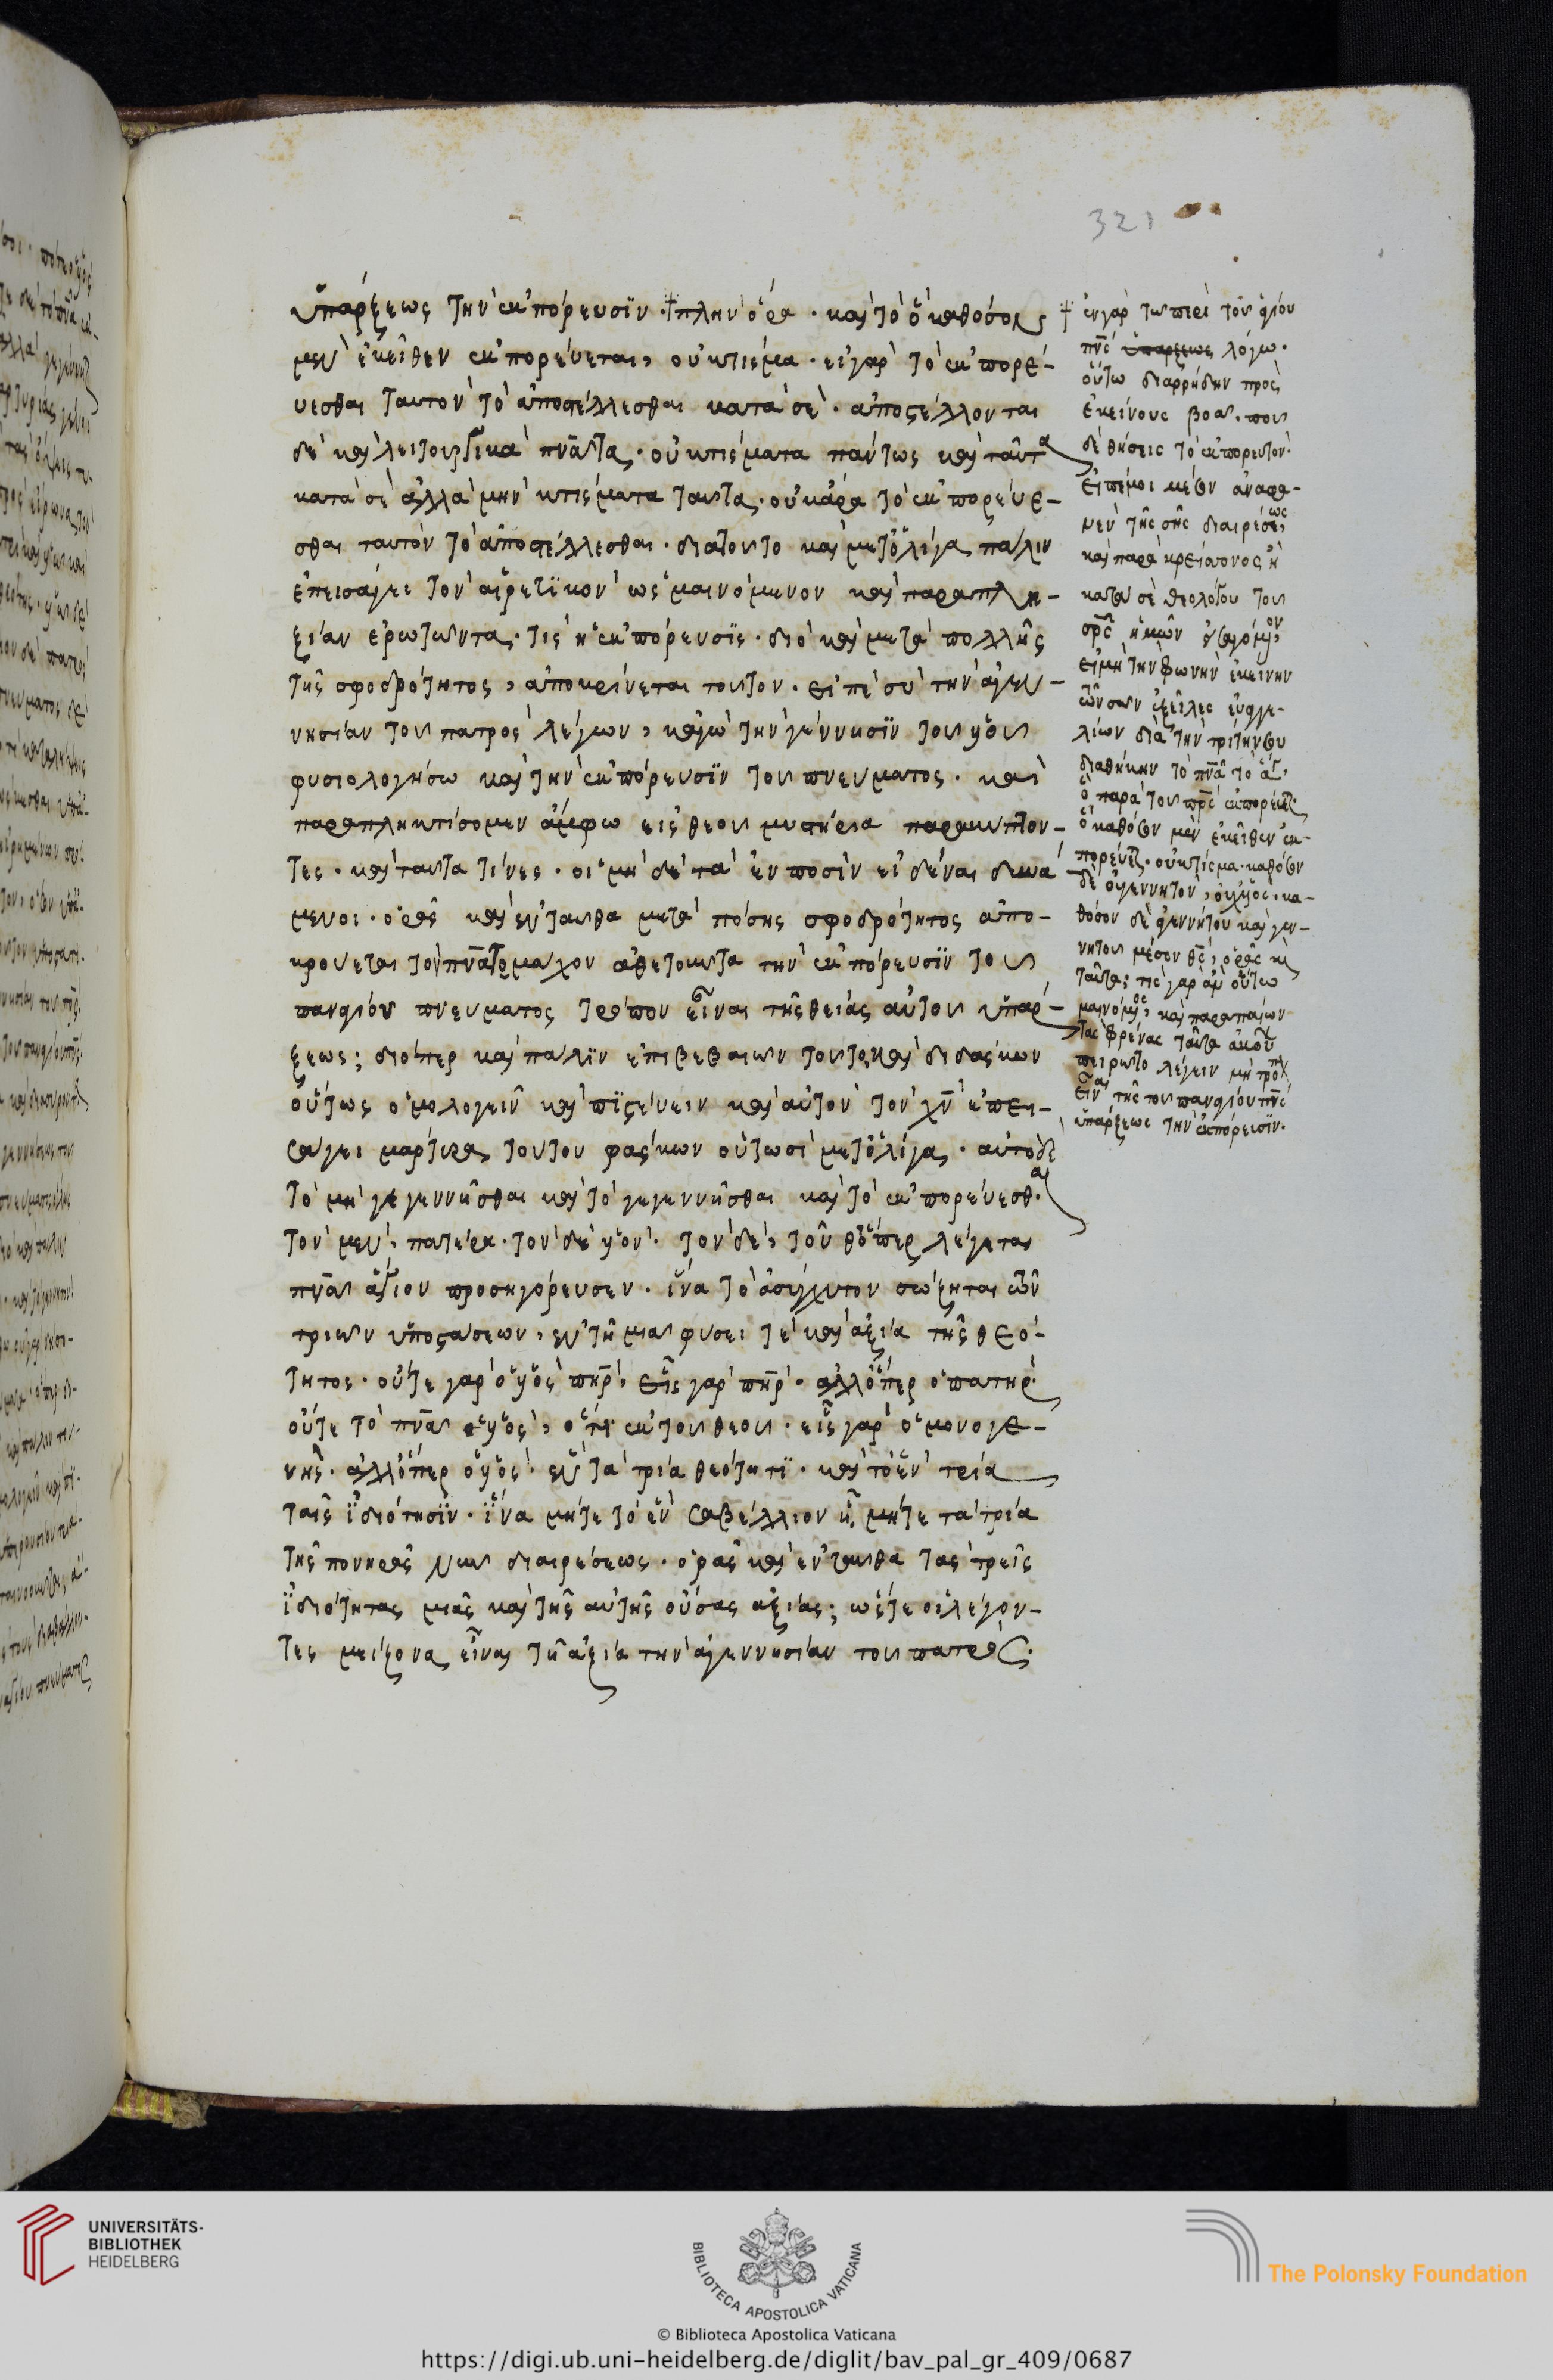 321
ὑπάρξεως τὴν ἐκπόρευσιν · ☨ πλὴν ὅρα · καὶ τὸ ὃ καθόσον
μὲν ἐκεῖθεν ἐκπορεύεται, οὐ κτίσμα · εἰ γὰρ τὸ ἐκπορε-
ύεσθαι ταυτὸν τὸ ἀποστέλλεσθαι κατὰ σὲ · ἀποστέλλονται
δὲ καὶ λειτουργικὰ πνα̅τα · οὐ κτίσματα πάντως καὶ ταῦτα
κατὰ σὲ ἀλλὰ μὴν κτίσματα ταῦτα · οὐκ ἄρα τὸ ἐκπορεύε-
σθαι ταυτὸν τὸ ἀποστέλλεσθαι · διὰ τοῦτο καὶ μετ' ὀλίγα πάλιν
ἐπεισάγει τὸν αἱρετικὸν ὡς μαινόμενον καὶ παραπλη-
ξίαν ἐρωτῶντα · τίς ἡ ἐκπόρευσις · διὸ καὶ μετὰ πολλῆς
τῆς σφοδρότητος, ἀποκρίνεται τοῦτον · εἰπὲ σὺ τὴν ἀγεν-
νησίαν τοῦ πατρὸς λέγων, κἀγὼ τὴν γέννησιν τοῦ υἱοῦ
φυσιολογήσω καὶ τὴν ἐκπόρευσιν τοῦ πνεύματος · καὶ
παραπληκτίσομεν ἄμφω εἰς θεοῦ μυστήρια παρακύπτον-
τες · καὶ ταῦτα τίνες · οἱ μὴ δὲ τὰ ἐν ποσὶν εἰδέναι δυνά-
μενοι · ὁρᾷς καὶ ἐνταῦθα μετὰ πόσης σφοδρότητος ἀπο-
κρούεται τὸν πνα̅τομάχον ἀθετοῦντα τὴν ἐκπόρευσιν τοῦ
παναγίου πνεύματος τρόπον εἶναι τῆς θείας αὐτοῦ ὑπάρ-
ξεως; διόπερ καὶ πάλιν ἐπιβεβαιῶν τοῦτο, καὶ διδάσκων
οὕτως ὁμολογεῖν καὶ πιστεύειν καὶ αὐτὸν τὸν χν̅ ἐπει-
σάγει μάρτυρα τούτου φάσκων οὑτωσὶ μετ' ὀλίγα · αὐτὸ δὲ
τὸ μὴ γεγεννῆσθαι καὶ τὸ γεγεννῆσθαι καὶ τὸ ἐκπορεύεσθαι
τὸν μὲν, πατέρα · τὸν δὲ υἱὸν · τὸν δὲ, τοῦθ' ὅπερ λέγεται
πνα̅ ἅγιον προσηγόρευσεν · ἵνα τὸ ἀσύγχυτον σώζηται τῶν
τριῶν ὑποστάσεων, ἐν τῇ μιᾷ φύσει τὲ καὶ ἀξίᾳ τῆς θεό-
τητος · οὔτε γὰρ ὁ υἱὸς πηρ̅, εἷς γὰρ πηρ̅ · ἀλλ' ὅπερ ὁ πατὴρ
οὔτε τὸ πνα̅ υἱὸς, ὅτι ἐκ τοῦ θεοῦ · εἷς γὰρ ὁ μονογε-
νής · ἀλλ' ὅπερ ὁ υἱὸς · ἓν τὰ τρία θεότητι · καὶ τὸ ἓν τρία
ταῖς ἰδιότησιν · ἵνα μήτε τὸ ἓν Σαβέλλιον ᾖ, μήτε τὰ τρία
τῆς πονηρᾶς νῦν διαιρέσεως · ὁρᾷς καὶ ἐνταῦθα τὰς τρεῖς
ἰδιότητας μιᾶς καὶ τῆς αὐτῆς οὔσας ἀξίας; ὥστε οἱ λέγον-
τες μείζονα εἶναι τῇ ἀξίᾳ τὴν ἀγεννησίαν τοῦ πατρός ·
☨ ἐν γὰρ τῷ περὶ τοῦ ἁγίου
πνς̅ ὑπάρξεως λόγῳ ·
οὕτω διαρρήδην πρὸς
ἐκείνους βοᾷ · ποῦ
δὲ θήσεις τὸ ἐκπορευτὸν ·
εἰπέ μοι μέσον ἀναφα-
νὲν τῆς σῆς διαιρέσεως,
καὶ παρὰ κρείσσονος ἢ
κατὰ σὲ θεολόγου τοῦ
σρς̅ ἡμῶν εἰσαγόμενον,
εἰ μὴ τὴν φωνὴν ἐκείνην
τῶν σῶν ἐξεῖλες εὐαγγε-
λίων διὰ τὴν τρίτην σου
διαθήκην τὸ πνα̅ τὸ ἅγιον,
ὃ παρὰ τοῦ πρς̅ ἐκπορεύεται ·
ὃ καθόσον μὲν ἐκεῖθεν ἐκ-
πορεύεται · οὐ κτίσμα · καθόσον
δὲ οὐ γεννητὸν, οὐχ υἱός · κα-
θόσον δὲ ἀγεννήτου καὶ γεν-
νητοῦ μέσον θς̅, ὁρᾷς καὶ
ταῦτα; τίς γὰρ ἂν οὕτω
μαινόμενος, καὶ παραπαίων
τὰς φρένας ταῦτα ἀκούων
πειρῷτο λέγειν μὴ τρόπον
εἶναι τῆς τοῦ παναγίου πνς̅
ὑπάρξεως τὴν ἐκπόρευσιν ·
UNIVERSITÄTS-
BIBLIOTHEK
HEIDELBERG
BIBLIOTECA APOSTOLICA VATICANA
The Polonsky Foundation
© Biblioteca Apostolica Vaticana
https://digi.ub.uni-heidelberg.de/diglit/bav_pal_gr_409/0687